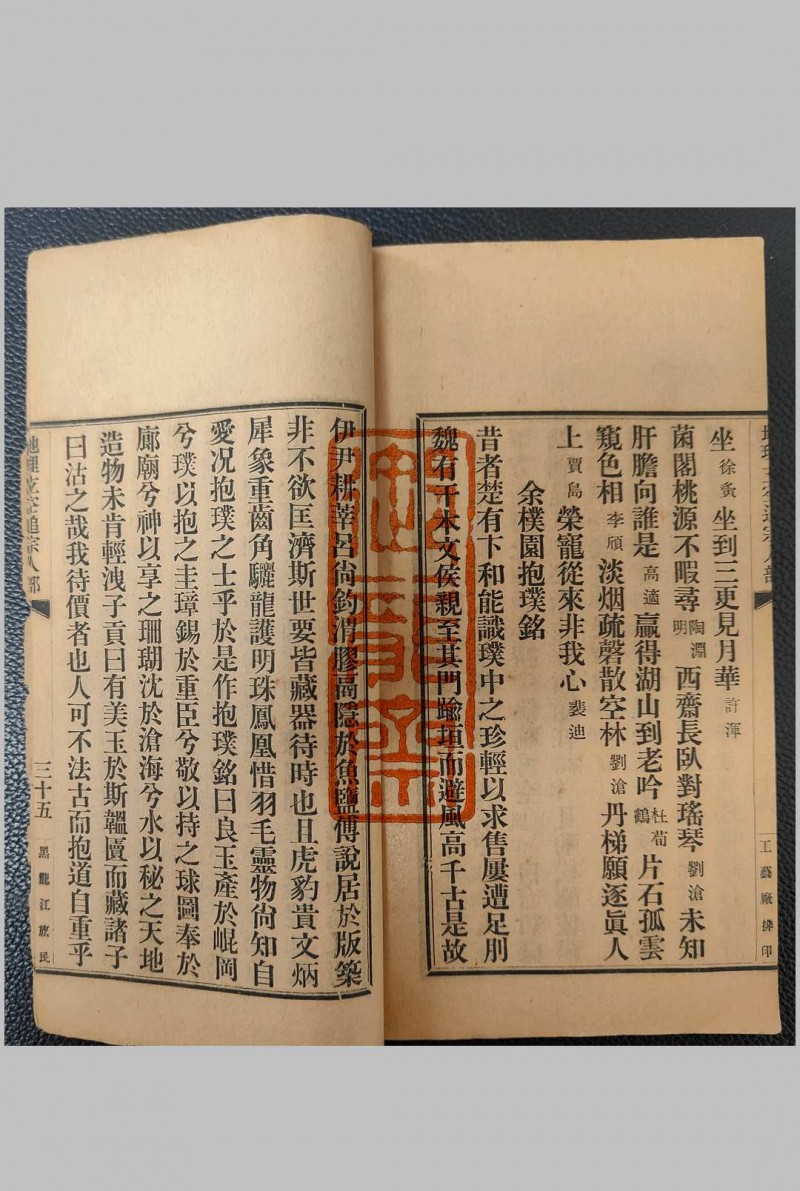 坐徐夤坐到三更見月華許渾
菌閣桃源不暇尋陶淵明西齋長臥對瑤琴劉滄未知
肝膽向誰是高適贏得湖山到老吟杜荀鶴片石孤雲
窺色相李頎淡烟疏磬散空林劉滄丹梯願逐眞人
上賈島榮寵從來非我心裴迪
余樸園抱璞銘
昔者楚有卞和能識璞中之珍輕以求售屢遭足刖
魏有干木文侯親至其門踰垣而避風高千古是故
工藝廠排印
伊尹耕莘呂尙釣渭膠鬲隱於魚鹽傅說居於版築
非不欲匡濟斯世要皆藏器待時也且虎豹貴文炳
犀象重齒角驪龍護明珠鳳凰惜羽毛靈物尙知自
愛況抱璞之士乎於是作抱璞銘曰良玉產於崐岡
兮璞以抱之圭璋錫於重臣兮敬以持之球圖奉於
廊廟兮神以享之珊瑚沈於滄海兮水以秘之天地
造物未肯輕洩子貢曰有美玉於斯韞匵而藏諸子
曰沽之哉我待價者也人可不法古而抱道自重乎
三十五
黑龍江旅民